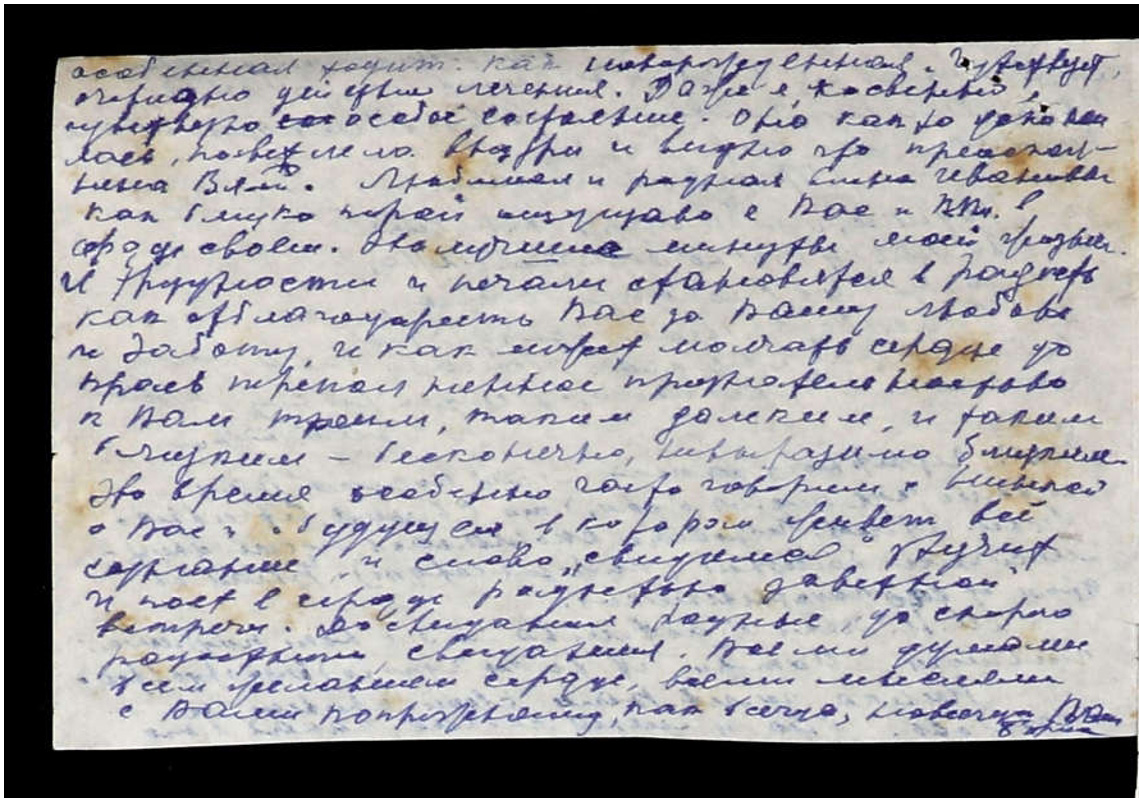 особенная ходит. как новорожденная. Чувствует,
очевидно действие лечения. Даже я, косвенно,
чувствую особое состояние. Она как то успокои
лась, посветлела внутри и видно что преиспол-
нена Вами. Любимая и родная Ивановна
как близко порой ощущаю я Вас и в
сердце своем. Это лучшие минуты моей жизни.
И трудности и печали становятся в радость
как отблагодарить Вас за Вашу любовь
и заботу, и как может молчать сердце до
краев переполненное признательностью
к Вам троим, таким далеким, и таким
близким – бесконечно, невыразимо близким.
Это время особенно часто говорим с
о Вас и о будущем в котором живет всё
сознание и слово „свидимся" звучит
и поет в сердце радостью заветной
встречи. До свидания родные до скорого
радостного свидания. Всеми думами
всем желанием сердца, всеми мыслями
с Вами попрежнему, как всегда, навсегда Ваш
Борис